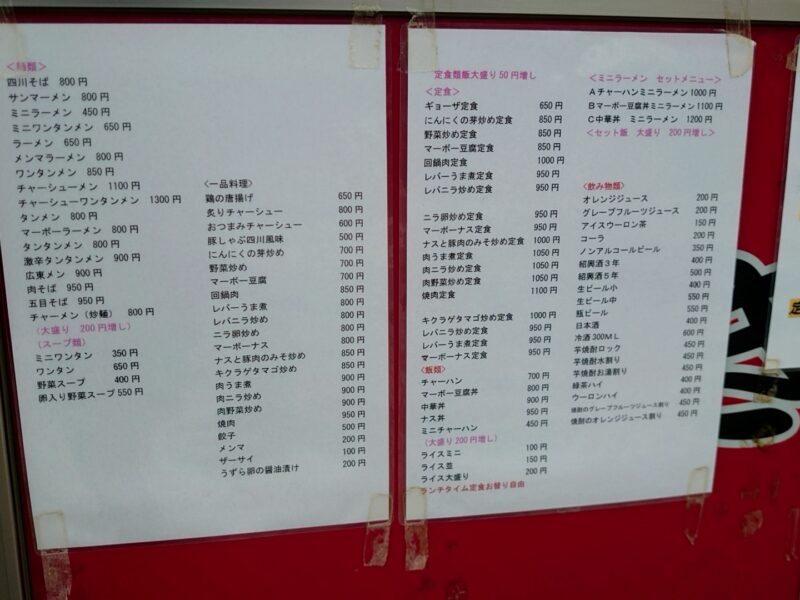 <麺類>
四川そば 800円
サンマーメン 800円
ミニラーメン 450円
ミニワンタンメン 650円
ラーメン 650円
メンマラーメン 800円
ワンタンメン 850円
チャーシューメン 1100円
チャーシューワンタンメン 1300円
タンメン 800円
マーボーラーメン 800円
タンタンメン 800円
激辛タンタンメン 900円
広東メン 900円
肉そば 950円
五目そば 950円
チャーメン(炒麺) 800円
(大盛り 200円増し)
(スープ類)
ミニワンタン 350円
ワンタン 650円
野菜スープ 400円
卵入り野菜スープ 550円
<一品料理>
鶏の唐揚げ 650円
炙りチャーシュー 800円
おつまみチャーシュー 600円
豚しゃぶ四川風味 500円
にんにくの芽炒め 700円
野菜炒め 700円
マーボー豆腐 700円
回鍋肉 850円
レバーうま煮 800円
レバニラ炒め 800円
ニラ卵炒め 800円
マーボーナス 800円
ナスと豚肉のみそ炒め 850円
キクラゲタマゴ炒め 850円
肉うま煮 900円
肉ニラ炒め 900円
肉野菜炒め 900円
焼肉 950円
餃子 500円
メンマ 200円
ザーサイ 100円
うずら卵の醤油漬け 200円
定食麺飯大盛り50円増し
<定食>
ギョーザ定食 650円
にんにくの芽炒め定食 850円
野菜炒め定食 850円
マーボー豆腐定食 850円
回鍋肉定食 1000円
レバーうま煮定食 950円
レバニラ炒め定食 950円
ニラ卵炒め定食 950円
マーボーナス定食 950円
ナスと豚肉のみそ炒め定食 1000円
肉うま煮定食 1050円
肉ニラ炒め定食 1050円
肉野菜炒め定食 1050円
焼肉定食 1100円
キクラゲタマゴ炒め定食 1000円
レバニラ炒め定食 950円
レバーうま煮定食 950円
マーボーナス定食 950円
<飯類>
チャーハン 700円
マーボー豆腐丼 800円
中華丼 900円
ナス丼 950円
ミニチャーハン 450円
(大盛り200円増し)
ライスミニ 100円
ライス並 150円
ライス大盛り 200円
ランチタイム定食お替り自由
<ミニラーメン セットメニュー>
Aチャーハンミニラーメン1000円
Bマーボー豆腐丼ミニラーメン1100円
C中華丼 ミニラーメン 1200円
<セット飯 大盛り 200円増し>
<飲み物類>
オレンジジュース 200円
グレープフルーツジュース 200円
アイスウーロン茶 150円
コーラ 200円
ノンアルコールビール 350円
紹興酒3年 400円
紹興酒5年 500円
生ビール小 400円
生ビール中 550円
瓶ビール 550円
日本酒 400円
冷酒300ML 600円
芋焼酎ロック 450円
芋焼酎水割り 450円
芋焼酎お湯割り 450円
緑茶ハイ 400円
ウーロンハイ 400円
焼酎のグレープフルーツジュース割り 450円
焼酎のオレンジジュース割り 450円